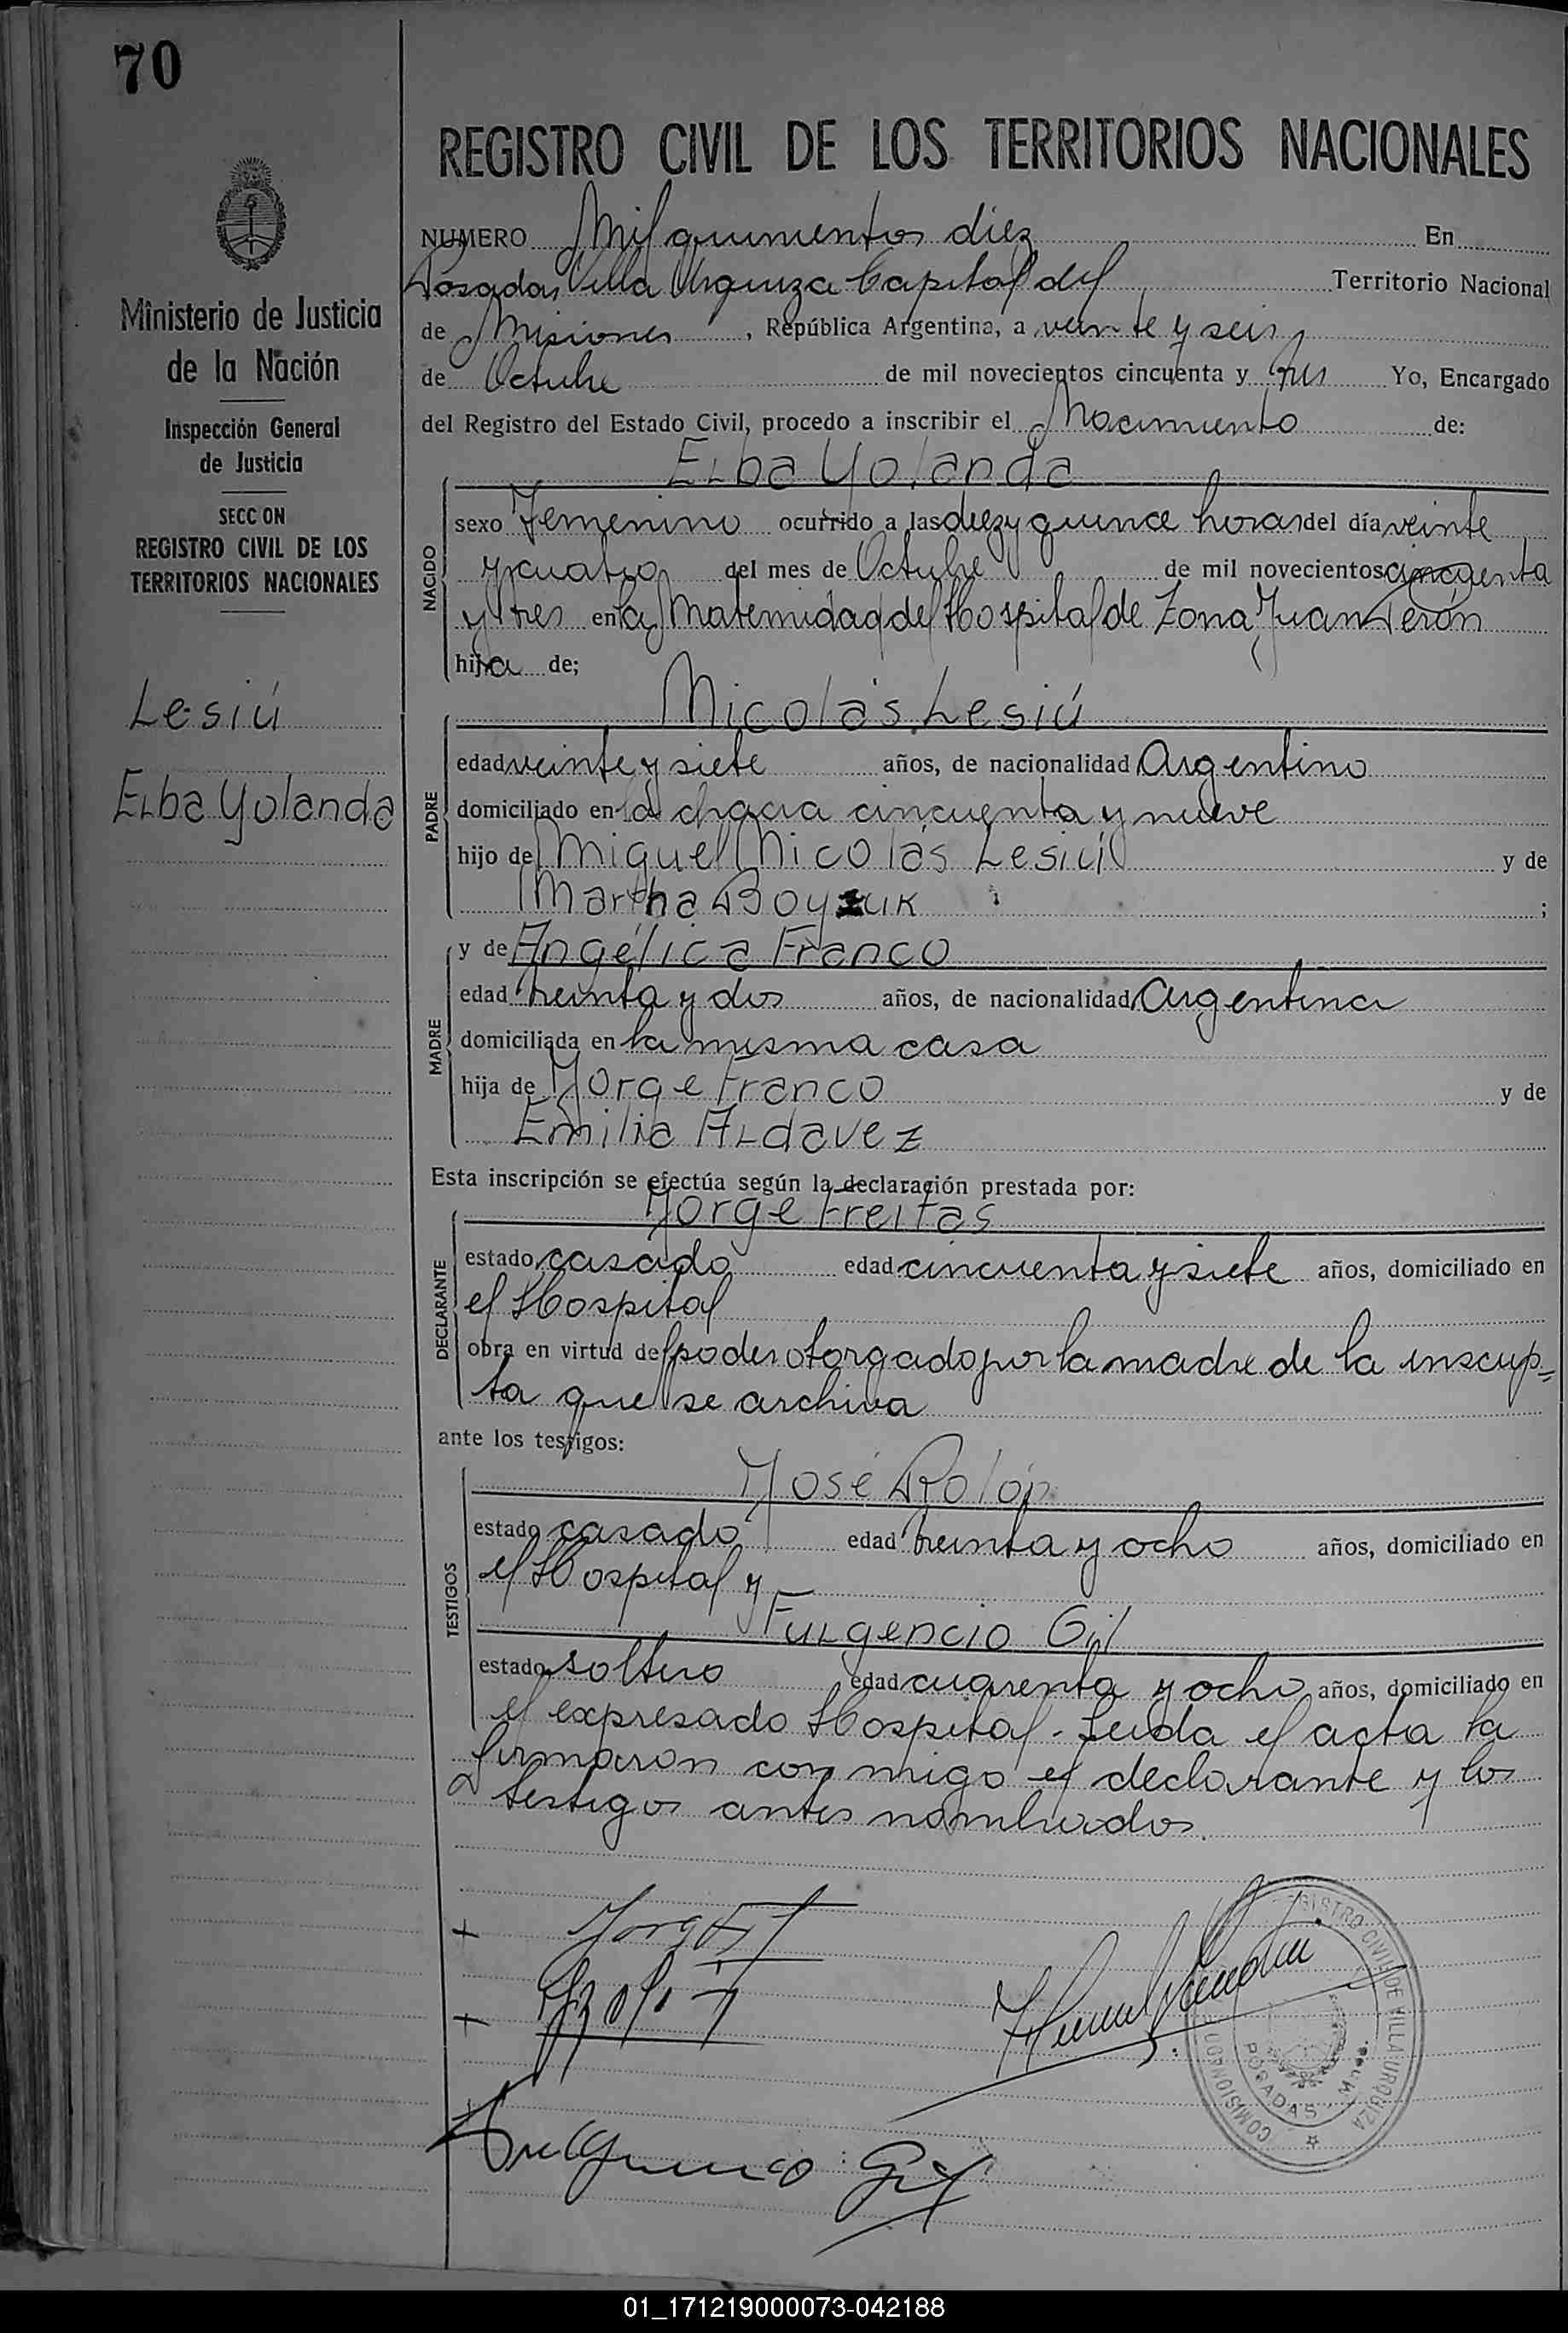 70
REGISTRO CIVIL DE LOS TERRITORIOS NACIONALES
Ministerio de Justicia
de la Nación
Inspección General
de Justicia
SECC ON
REGISTRO CIVIL DE LOS
TERRITORIOS NACIONALES
Lesiú
Elba Yolanda
NUMERO Mil quinientos diez En
Posadas Villa Urquiza Capital del Territorio Nacional
de Misiones, República Argentina, a veinte y seis
de Octubre de mil novecientos cincuenta y tres Yo, Encargado
del Registro del Estado Civil, procedo a inscribir el Nacimiento de:
Elba Yolanda
NACIDO
sexo Femenino ocurrido a las diez y quince horas del día veinte
y cuatro del mes de Octubre de mil novecientos cincuenta
y tres en la Maternidad del Hospital de Zona Juan Perón
hija de;
Nicolás Lesiú
PADRE
edad veinte y siete años, de nacionalidad Argentino
domiciliado en la chacra cincuenta y nueve
hijo de Miguel Nicolás Lesiú y de
Martha Boyzuk ;
y de Angélica Franco
MADRE
edad treinta y dos años, de nacionalidad Argentina
domiciliada en la misma casa
hija de Jorge Franco y de
Emilia Aldavez
Esta inscripción se efectúa según la declaración prestada por:
Jorge Freitas
DECLARANTE
estado casado edad cincuenta y siete años, domiciliado en
el Hospital
obra en virtud del poder otorgado por la madre de la inscrip=
ta que se archiva
ante los testigos:
José Rolón
TESTIGOS
estado casado edad treinta y ocho años, domiciliado en
el Hospital y
Fulgencio Gil
estado soltero edad cuarenta y ocho años, domiciliado en
el expresado Hospital - Leida el acta la
firmaron con migo el declarante y los
testigos antes nombrados.
REGISTRO CIVIL DE VILLA URQUIZA
POSADAS
Fulgencio Gil
01_171219000073-042188